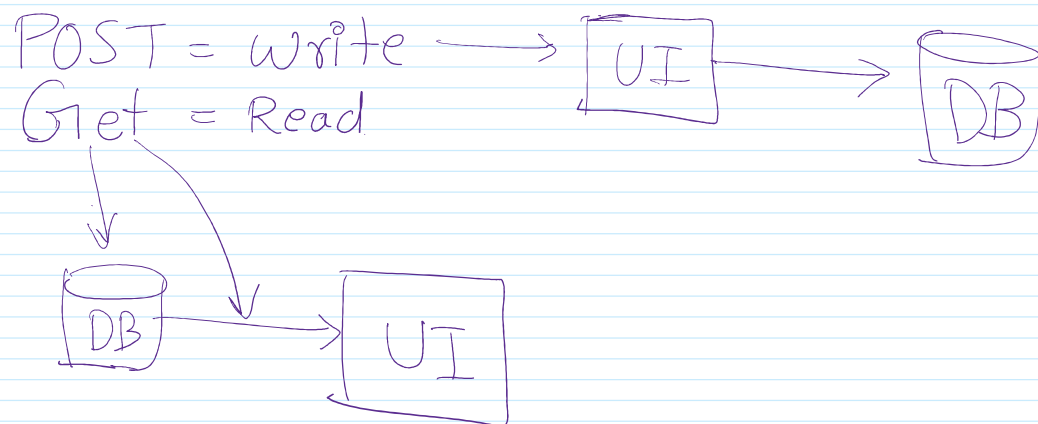 POST = Write UI DB
Get = Read
DB UI